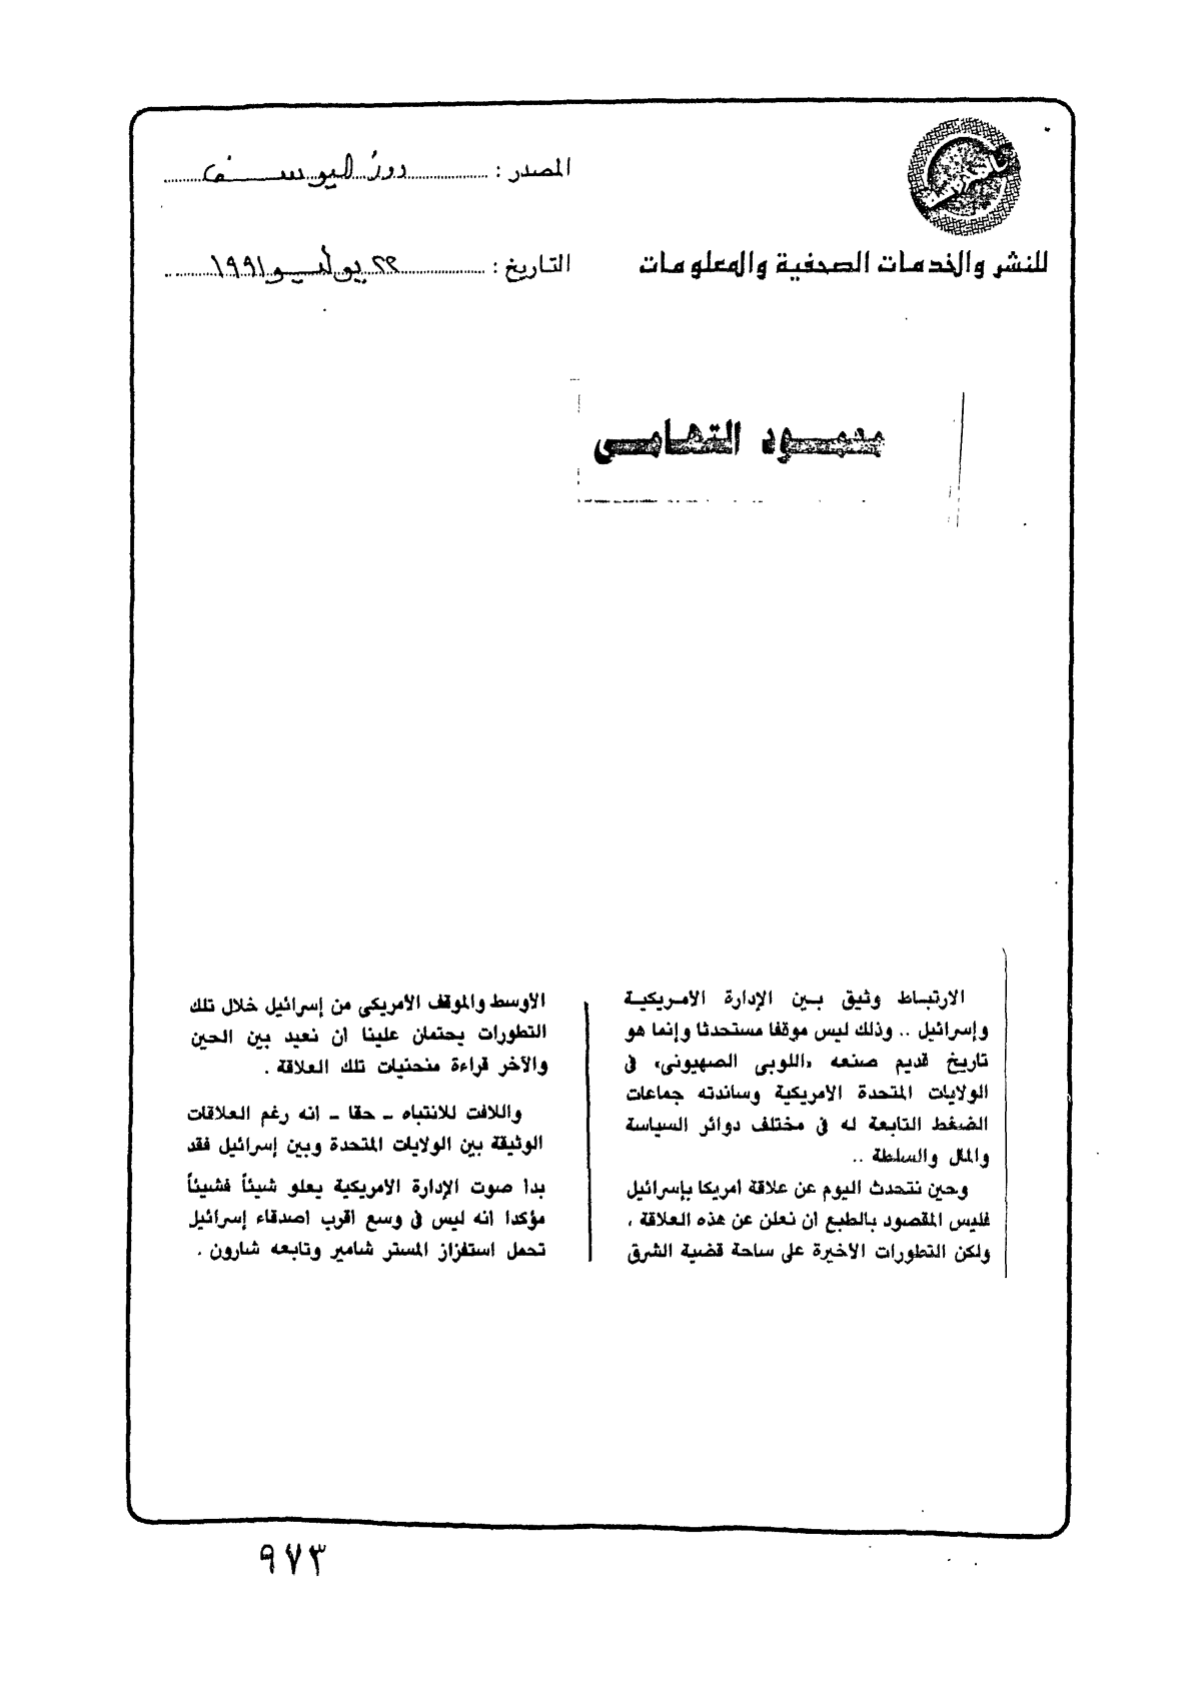 المصدر : روز اليوسف
للنشر والخدمات الصحفية والمعلومات
التاريخ : ٢٢ يوليو ١٩٩١
محمود التهامى
الارتباط وثيق بين الإدارة الامريكية
وإسرائيل .. وذلك ليس موقفا مستحدثا وإنما هو
تاريخ قديم صنعه «اللوبى الصهيونى» فى
الولايات المتحدة الامريكية وساندته جماعات
الضغط التابعة له فى مختلف دوائر السياسة
والمال والسلطة ..
وحين نتحدث اليوم عن علاقة امريكا بإسرائيل
فليس المقصود بالطبع ان نعلن عن هذه العلاقة ،
ولكن التطورات الاخيرة على ساحة قضية الشرق
الاوسط والموقف الامريكى من إسرائيل خلال تلك
التطورات يحتمان علينا ان نعيد بين الحين
والآخر قراءة منحنيات تلك العلاقة .
واللافت للانتباه ـ حقا ـ انه رغم العلاقات
الوثيقة بين الولايات المتحدة وبين إسرائيل فقد
بدا صوت الإدارة الامريكية يعلو شيئاً فشيئاً
مؤكدا انه ليس فى وسع اقرب اصدقاء إسرائيل
تحمل استفزاز المستر شامير وتابعه شارون .
٩٧٣